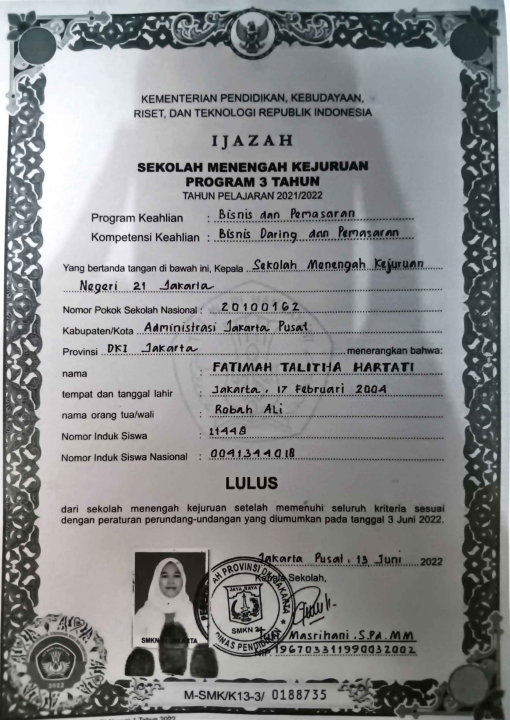 KEMENTERIAN PENDIDIKAN, KEBUDAYAAN,
RISET, DAN TEKNOLOGI REPUBLIK INDONESIA
IJAZAH
SEKOLAH MENENGAH KEJURUAN
PROGRAM 3 TAHUN
TAHUN PELAJARAN 2021/2022
Program Keahlian : Bisnis dan Pemasaran
Kompetensi Keahlian : Bisnis Daring dan Pemasaran
Yang bertanda tangan di bawah ini, Kepala Sekolah Menengah Kejuruan
Negeri 21 Jakarta
Nomor Pokok Sekolah Nasional : 20100162
Kabupaten/Kota Administrasi Jakarta Pusat
Provinsi DKI Jakarta menerangkan bahwa:
nama : FATIMAH TALITHA HARTATI
tempat dan tanggal lahir : Jakarta, 17 Februari 2004
nama orang tua/wali : Robah Ali
Nomor Induk Siswa : 11448
Nomor Induk Siswa Nasional : 0041344018
LULUS
dari sekolah menengah kejuruan setelah memenuhi seluruh kriteria sesuai
dengan peraturan perundang-undangan yang diumumkan pada tanggal 3 Juni 2022.
Jakarta Pusat, 13 Juni 2022
Kepala Sekolah,
PROVINSI DKI JAKARTA
JAYA RAYA
SMKN 21
DINAS PENDIDIKAN
Masrihani .S.Pa.MM
196703311990032002
2022
M-SMK/K13-3/ 0188735